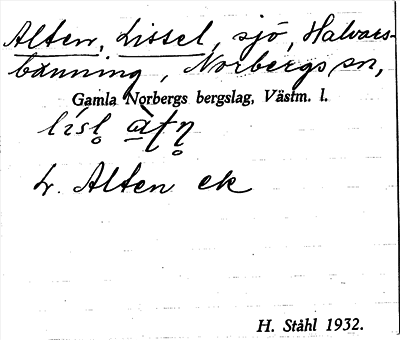 Alten, Lissel, sjö, Halvars-
bänning, Norbergs sn,
Gamla Norbergs bergslag, Västm. l.
L. Alten ek
H. Ståhl 1932.